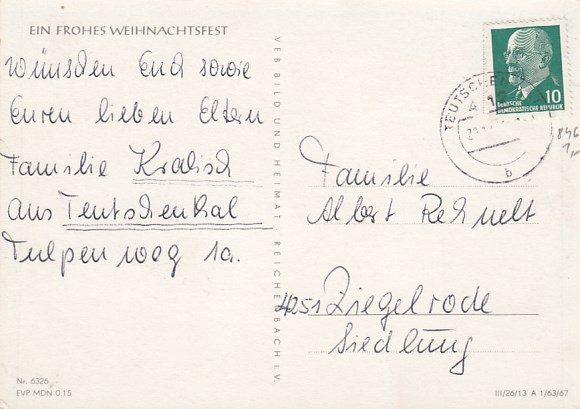 EIN FROHES WEIHNACHTSFEST
wünschen Euch sowie
Euren lieben Eltern
Familie Kralisch
aus Teutschenthal
Tulpenweg 1a.
Nr. 6326
EVP MDN 0.15
VEB BILD UND HEIMAT, REICHENBACH I. V.
10
DEUTSCHE
DEMOKRATISCHE REPUBLIK
TEUTSCHEN
b
Familie
Albert Rehnelt
4251 Ziegelrode
Siedlung
III/26/13 A 1/63/67